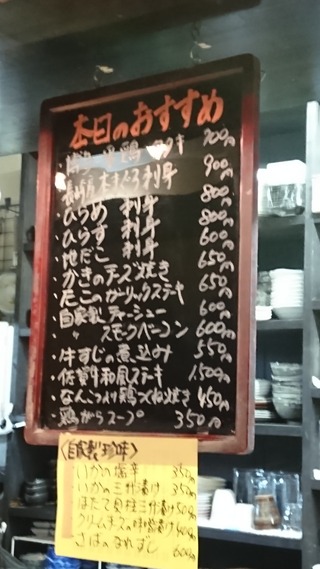 本日のおすすめ
鶏 700円
長崎産本まぐろ刺身 900円
・ひらめ 刺身 800円
・ひらす 刺身 800円
・地だこ 刺身 600円
・かきのチーズ焼き 650円
・たこのガーリックステーキ 650円
・自家製チャーシュー 600円
・〃 スモークベーコン 600円
・牛すじの煮込み 550円
・佐賀牛和風ステーキ 1,500円
・なんこつ入り鶏つくね焼き 450円
・鶏がらスープ 350円
〈自家製珍味〉
・いかの塩辛 350円
・いかの三升漬け 350円
・ほたて貝柱三升漬け 500円
・クリームチーズの味噌漬け 400円
・さばのなれずし 600円